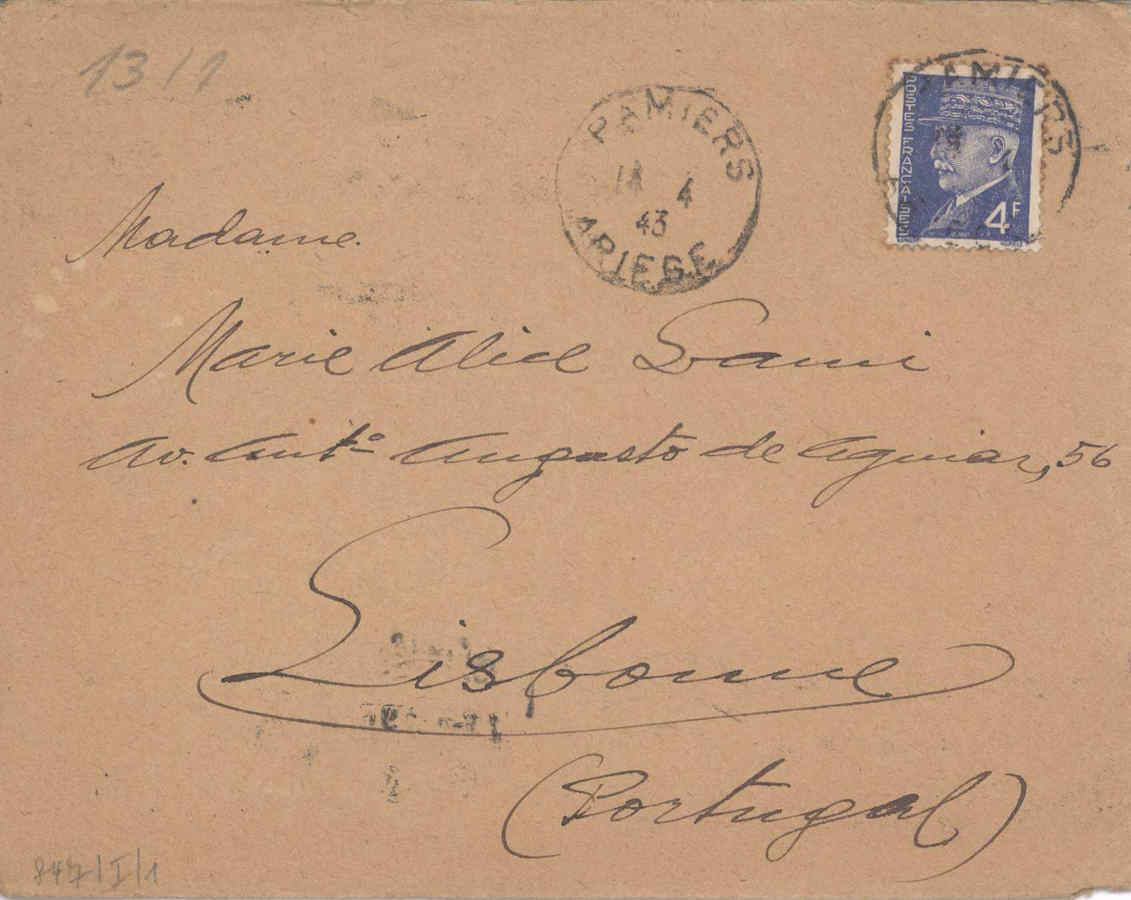 13/1
PAMIERS
4
43
ARIEGE
PAMIERS
POSTES FRANÇAISES
4F
Madame
Marie Alice
Av. Antº Augusto de Aguiar, 56
Lisbonne
(Portugal)
847/I/1